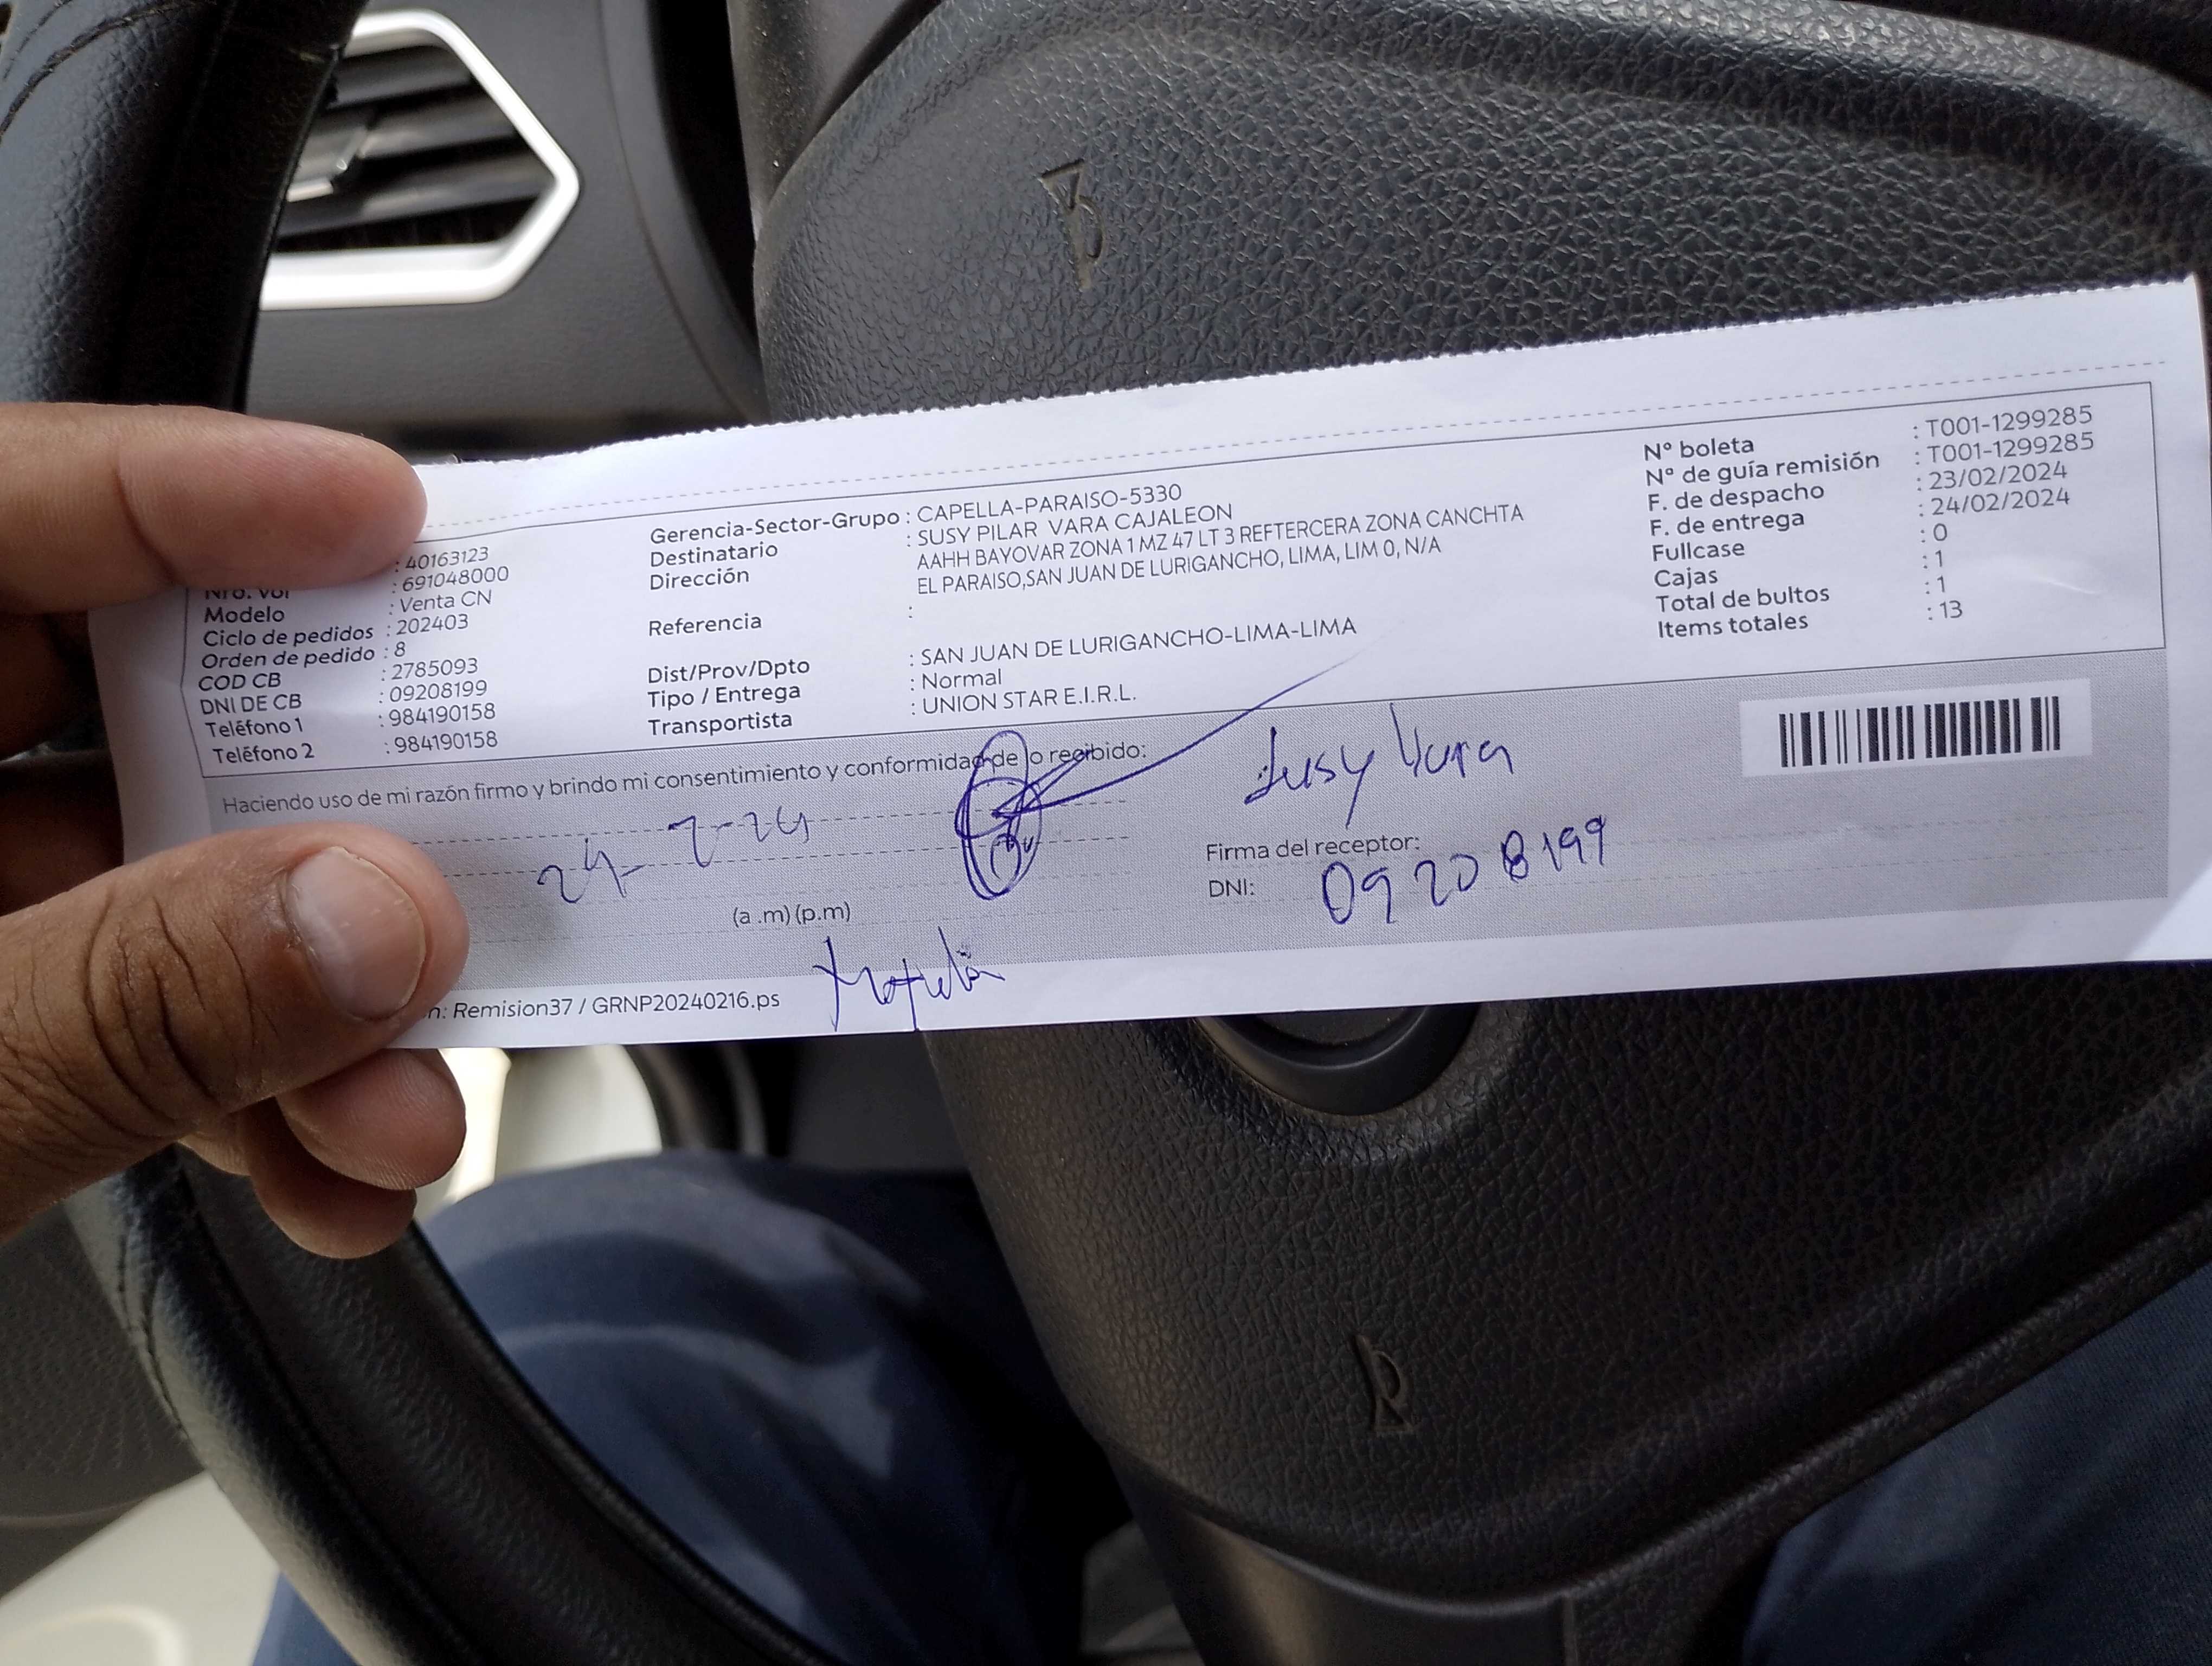 : 40163123
Nro. Vol : 691048000
Modelo : Venta CN
Ciclo de pedidos : 202403
Orden de pedido : 8
COD CB : 2785093
DNI DE CB : 09208199
Teléfono 1 : 984190158
Teléfono 2 : 984190158
Gerencia-Sector-Grupo : CAPELLA-PARAISO-5330
Destinatario : SUSY PILAR VARA CAJALEON
Dirección AAHH BAYOVAR ZONA 1 MZ 47 LT 3 REFTERCERA ZONA CANCHTA
EL PARAISO,SAN JUAN DE LURIGANCHO, LIMA, LIM 0, N/A
Referencia :
Dist/Prov/Dpto : SAN JUAN DE LURIGANCHO-LIMA-LIMA
Tipo / Entrega : Normal
Transportista : UNION STAR E.I.R.L.
Nº boleta : T001-1299285
Nº de guía remisión : T001-1299285
F. de despacho : 23/02/2024
F. de entrega : 24/02/2024
Fullcase : 0
Cajas : 1
Total de bultos : 1
Items totales : 13
Haciendo uso de mi razón firmo y brindo mi consentimiento y conformidad de lo recibido:
24-2-24
Susy Vara
Firma del receptor:
DNI: 09208199
(a .m) (p.m)
n: Remision37 / GRNP20240216.ps